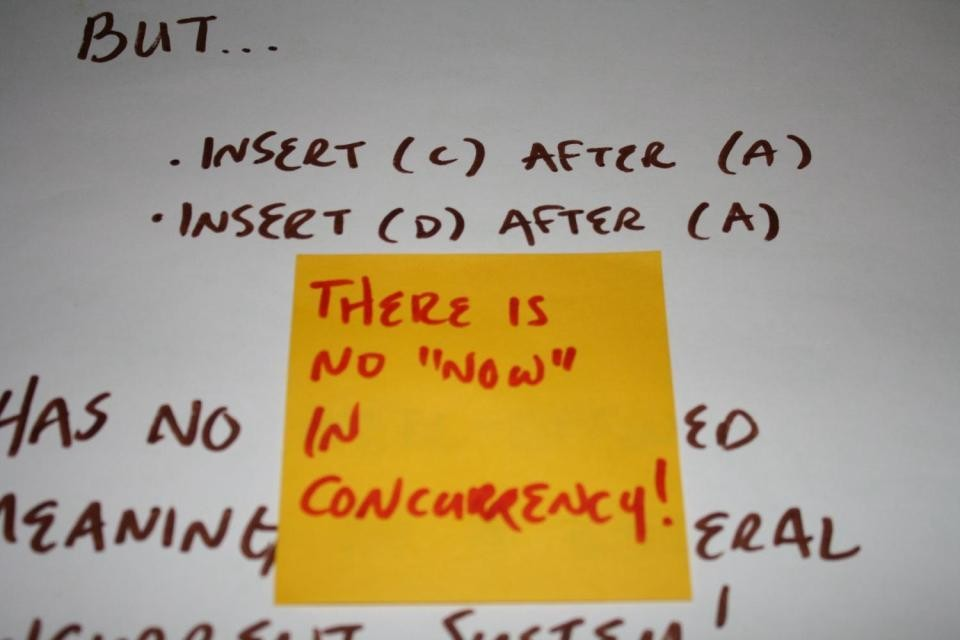 BUT...
· INSERT (C) AFTER (A)
· INSERT (D) AFTER (A)
THERE IS
NO "NOW"
IN
CONCURRENCY!
HAS NO ED
MEANING ERAL
SYSTEM!